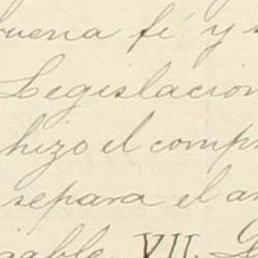 buena fé y s
Legislacion
hizo el comp
separa el a
gable VII. L